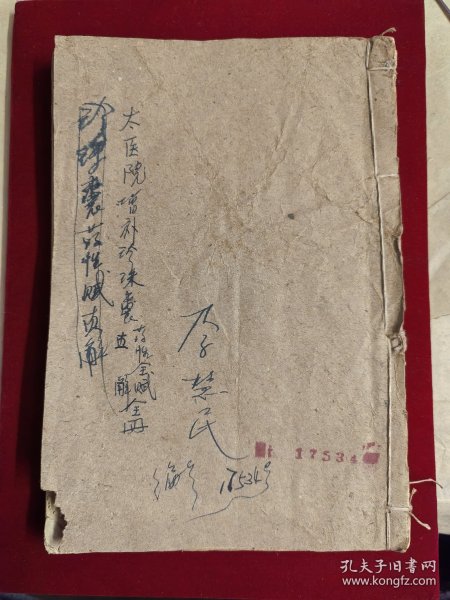 珍珠囊药性赋直解
太医院增补珍珠囊药性全赋
直解全册
慧民
编号 17534号
17534
孔夫子旧书网
www.kongfz.com